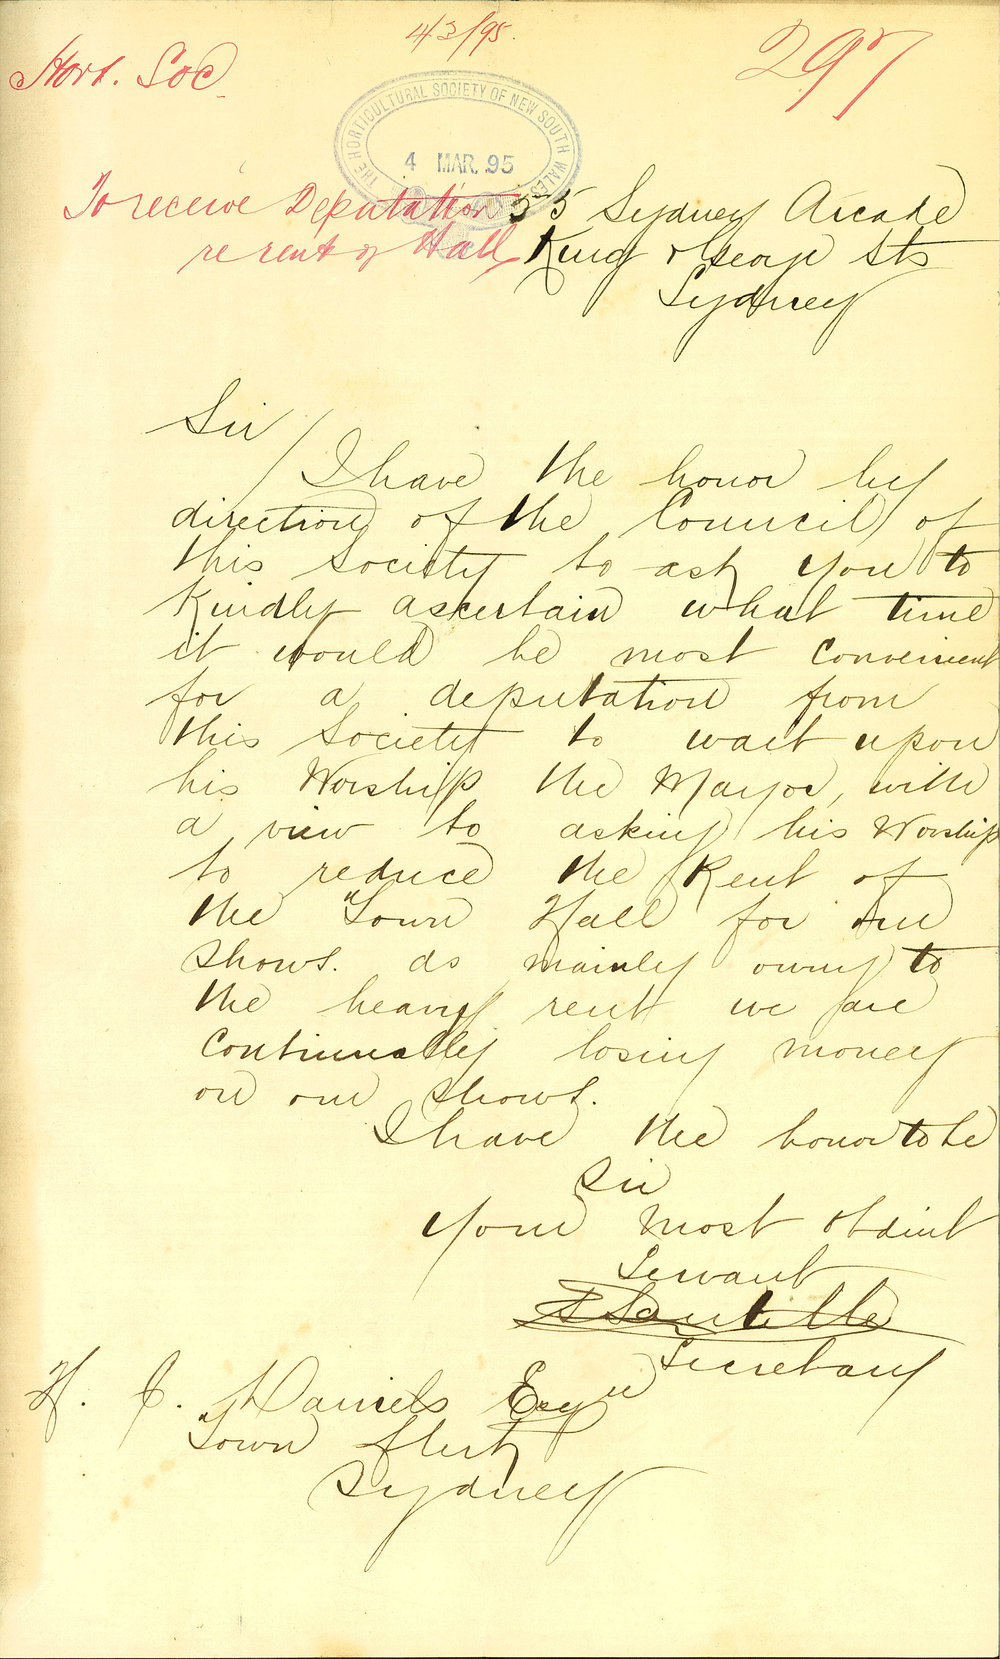 4/3/95.
Hort. Soc.
297
THE HORTICULTURAL SOCIETY OF NEW SOUTH WALES
4 MAR. 95
To receive Deputation
re rent of Hall
55 Sydney Arcade
King & George Sts
Sydney
Sir
I have the honor by
direction of the Council of
this Society to ask you to
Kindly ascertain what time
it would be most convenient
for a deputation from
this Society to wait upon
his Worship the Mayor, with
a view to asking his Worship
to reduce the Rent of
the Town Hall for our
shows. as mainly owing to
the heavy rent we are
continually losing money
on our shows.
I have the honor to be
Sir
Your most obdient
Servant
Secretary
H. J. Daniels Esqre
Town Clerk
Sydney